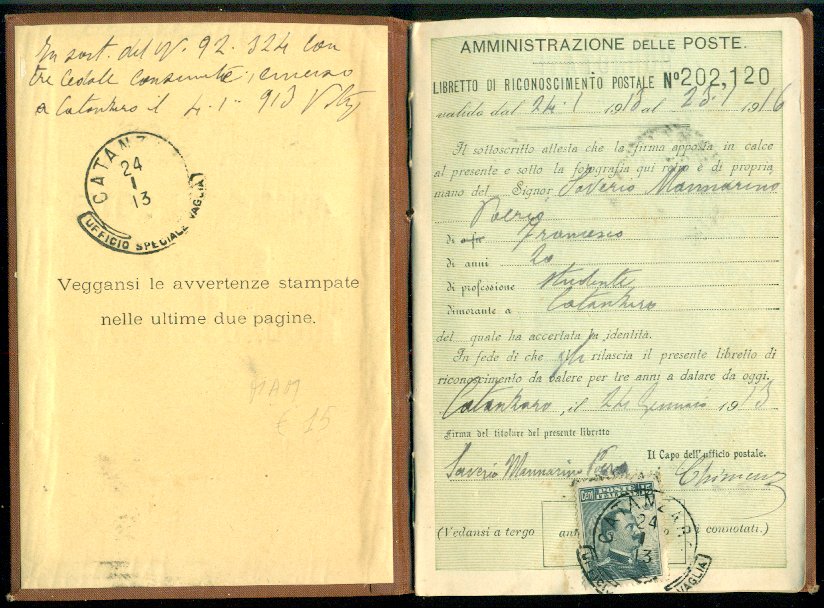 In sost. del N. 92.324 con
tre cedole consumate, emesso
a Catanzaro il 4.1 913
CATANZ
24
1
13
UFFICIO SPECIALE VAGLIA
Veggansi le avvertenze stampate
nelle ultime due pagine.
€ 15
AMMINISTRAZIONE DELLE POSTE.
LIBRETTO DI RICONOSCIMENTO POSTALE Nº 202,120
valido dal 24.1 1913 al 23.1 1916
Il sottoscritto attesta che la firma apposta in calce
al presente e sotto la fotografia qui retro è di propria
mano del Signor Saverio Mannarino
Poerio
di Francesco
di anni 20
di professione studente
dimorante a Catanzaro
del quale ha accertata la identità.
In fede di che gli rilascia il presente libretto di
riconoscimento da valere per tre anni a datare da oggi.
Catanzaro, il 24 Gennaio 1913
Firma del titolare del presente libretto
Il Capo dell'ufficio postale.
Saverio Mannarino Poerio
(Vedansi a tergo connotati.)
Cent 15
POSTE
ITALIANE
CATANZAR
24
13
VAGLIA